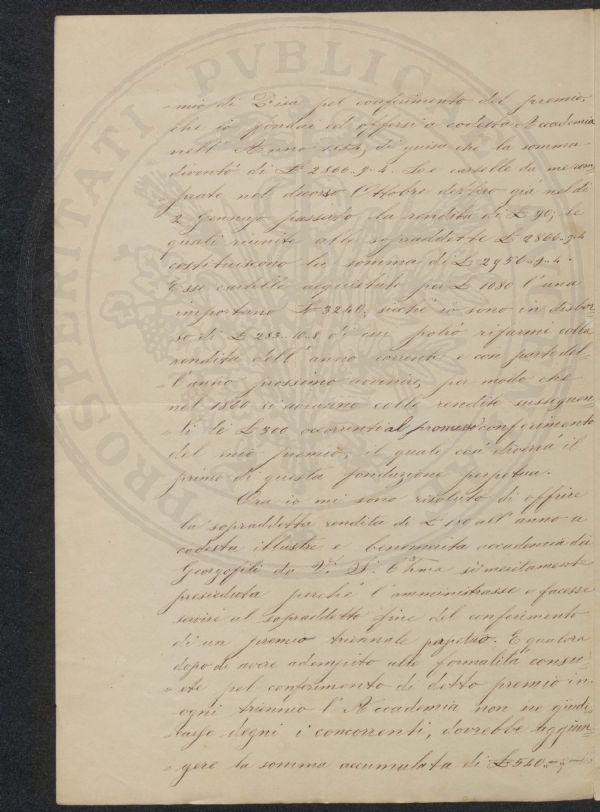 PROSPERITATI PVBLICAE
mio di Pisa pel conferimento del premio,
che io fondai ed offersi a codesta Accademia
nell' Anno 1854, di guisa che la somma
diventò di £ 2866.9.4. Le cartelle da me com-
prate nel decorso Ottobre già nel dì
2 Gennajo passato la rendita di £ 90, le
quali riunite alle sopraddette £ 2866.9.4
costituiscono la somma di £ 2956.9.4.
Esse cartelle acquistate per £ 1080 l'una
importano £ 3240, sicchè io sono in disbor-
so di £ 283.10.8 di cui potrò rifarmi colla
rendita dell'anno corrente e con parte del-
l'anno prossimo avvenire, per modo che
nel 1860 si avranno colle rendite susseguen-
ti le £ 300 occorrenti al promesso conferimento
del mio premio, il quale così diverrà il
primo di questa fondazione perpetua.
Ora io mi sono risoluto di offrire
la sopraddetta rendita di £ all'anno a
codesta illustre e benemerita accademia dei
Georgofili da V. S. sì meritamente
presieduta perchè l'amministrasse e facesse
servire al sopraddetto fine del conferimento
di un premio triennale perpetuo. E qualora
dopo di avere adempito alle formalità consu-
ete pel conferimento di detto premio in
ogni triennio l'Accademia non ne giudi-
casse degni i concorrenti, dovrebbe aggiun-
gere la somma accumulata di £ 540